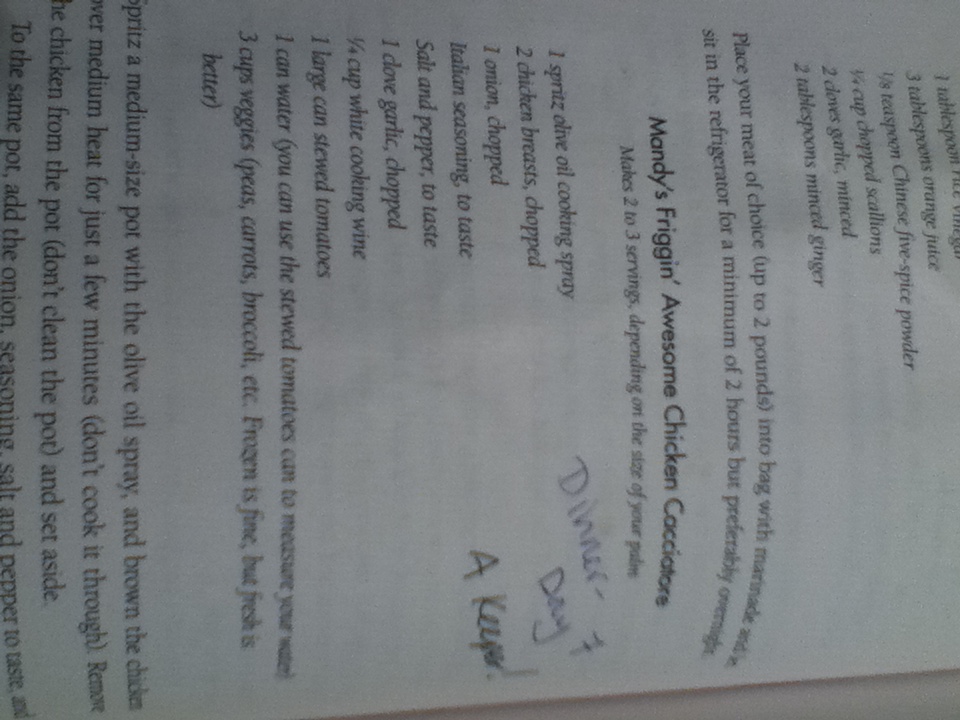 1 tablespoon rice vinegar
3 tablespoons orange juice
⅛ teaspoon Chinese five-spice powder
¼ cup chopped scallions
2 cloves garlic, minced
2 tablespoons minced ginger
Place your meat of choice (up to 2 pounds) into bag with marinade and
sit in the refrigerator for a minimum of 2 hours but preferably overnight.
Mandy's Friggin' Awesome Chicken Cacciatore
Makes 2 to 3 servings, depending on the size of your palm
1 spritz olive oil cooking spray
2 chicken breasts, chopped
1 onion, chopped
Italian seasoning, to taste
Salt and pepper, to taste
1 clove garlic, chopped
¼ cup white cooking wine
1 large can stewed tomatoes
1 can water (you can use the stewed tomatoes can to measure your water)
3 cups veggies (peas, carrots, broccoli, etc. Frozen is fine, but fresh is
better)
Dinner-
Day 7
A Keeper!
Spritz a medium-size pot with the olive oil spray, and brown the chicken
over medium heat for just a few minutes (don't cook it through). Remove
he chicken from the pot (don't clean the pot) and set aside.
To the same pot, add the onion, seasoning, salt and pepper to taste, and